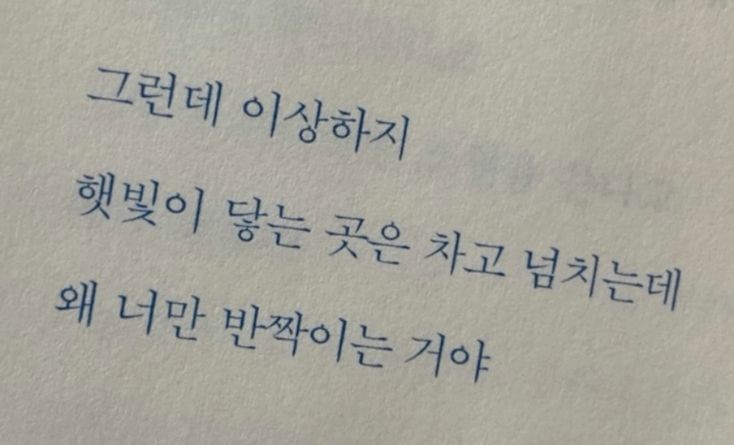 그런데 이상하지
햇빛이 닿는 곳은 차고 넘치는데
왜 너만 반짝이는 거야